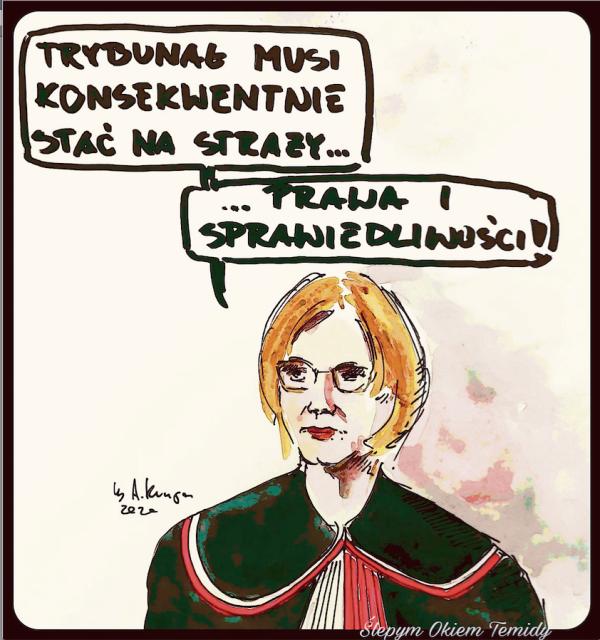 TRYBUNAŁ MUSI
KONSEKWENTNIE
STAĆ NA STRAŻY...
... PRAWA I
SPRAWIEDLIWOŚCI!
by A.
2020
Ślepym Okiem Temidy